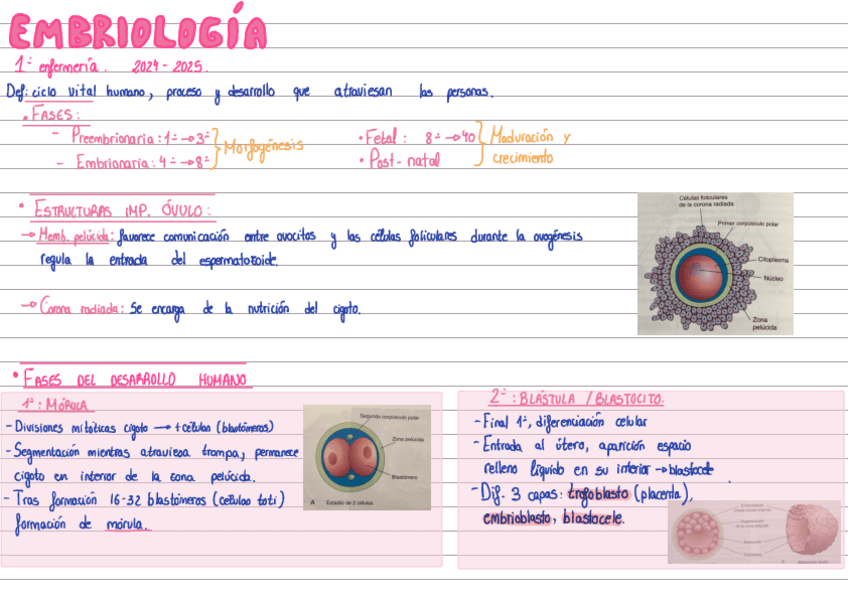 EMBRIOLOGÍA
1º enfermería. 2024-2025.
Def: ciclo vital humano, proceso y desarrollo que atraviesan las personas.
• FASES:
- Preembrionaria: 1ª → 3ª
- Embrionaria: 4ª → 8ª
Morfogénesis
• Fetal: 8ª → 40
• Post-natal
Maduración y
crecimiento
• ESTRUCTURAS IMP. ÓVULO:
→ Memb. pelúcida: favorece comunicación entre ovocitos y las células foliculares durante la ovogénesis
regula la entrada del espermatozoide.
→ Corona radiada: Se encarga de la nutrición del cigoto.
Células foliculares
de la corona radiada
Primer corpúsculo polar
Citoplasma
Núcleo
Zona
pelúcida
• FASES DEL DESARROLLO HUMANO
1ª: MÓRULA
- Divisiones mitóticas cigoto → + células (blastómeros)
- Segmentación mientras atraviesa trompa, permanece
cigoto en interior de la zona pelúcida.
- Tras formación 16-32 blastómeros (células toti)
formación de mórula.
Segundo corpúsculo polar
Zona pelúcida
Blastómero
A Estadio de 2 células
2ª: BLÁSTULA / BLASTOCITO.
- Final 1ª, diferenciación celular
- Entrada al útero, aparición espacio
relleno líquido en su inferior → blastocele
- Dif. 3 capas: trofoblasto (placenta),
embrioblasto, blastocele.